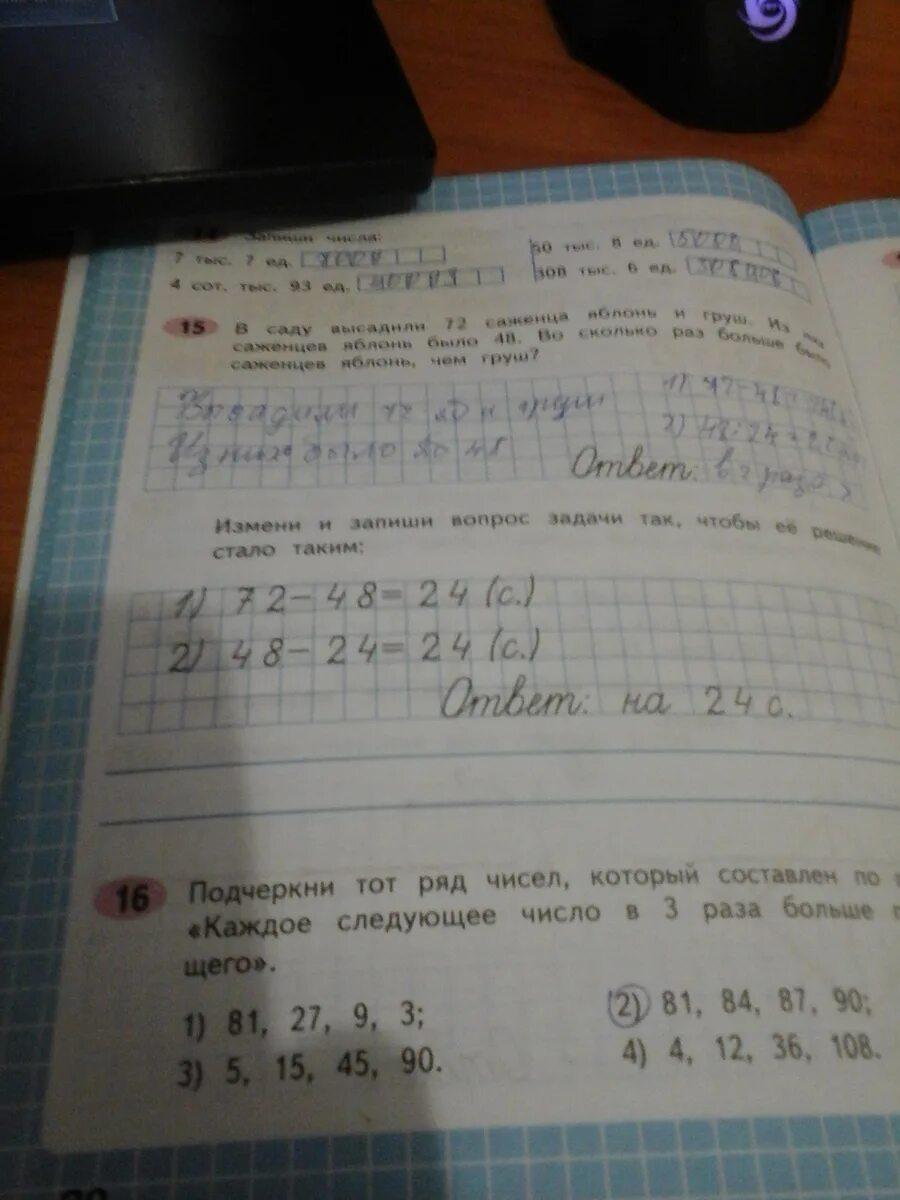 Запиши числа:
7 тыс. 7 ед.
50 тыс. 8 ед.
4 сот. тыс. 93 ед.
308 тыс. 6 ед.
15 В саду высадили 72 саженца яблонь и груш. Из них
саженцев яблонь было 48. Во сколько раз больше было
саженцев яблонь, чем груш?
Высадили 72 яб и груш
Из них было яб 48
Ответ: в 2 раза
Измени и запиши вопрос задачи так, чтобы её решение
стало таким:
1) 72-48=24 (с.)
2) 48-24=24 (с.)
Ответ: на 24 с.
16 Подчеркни тот ряд чисел, который составлен по
«Каждое следующее число в 3 раза больше
щего».
1) 81, 27, 9, 3;
2) 81, 84, 87, 90;
3) 5, 15, 45, 90.
4) 4, 12, 36, 108.